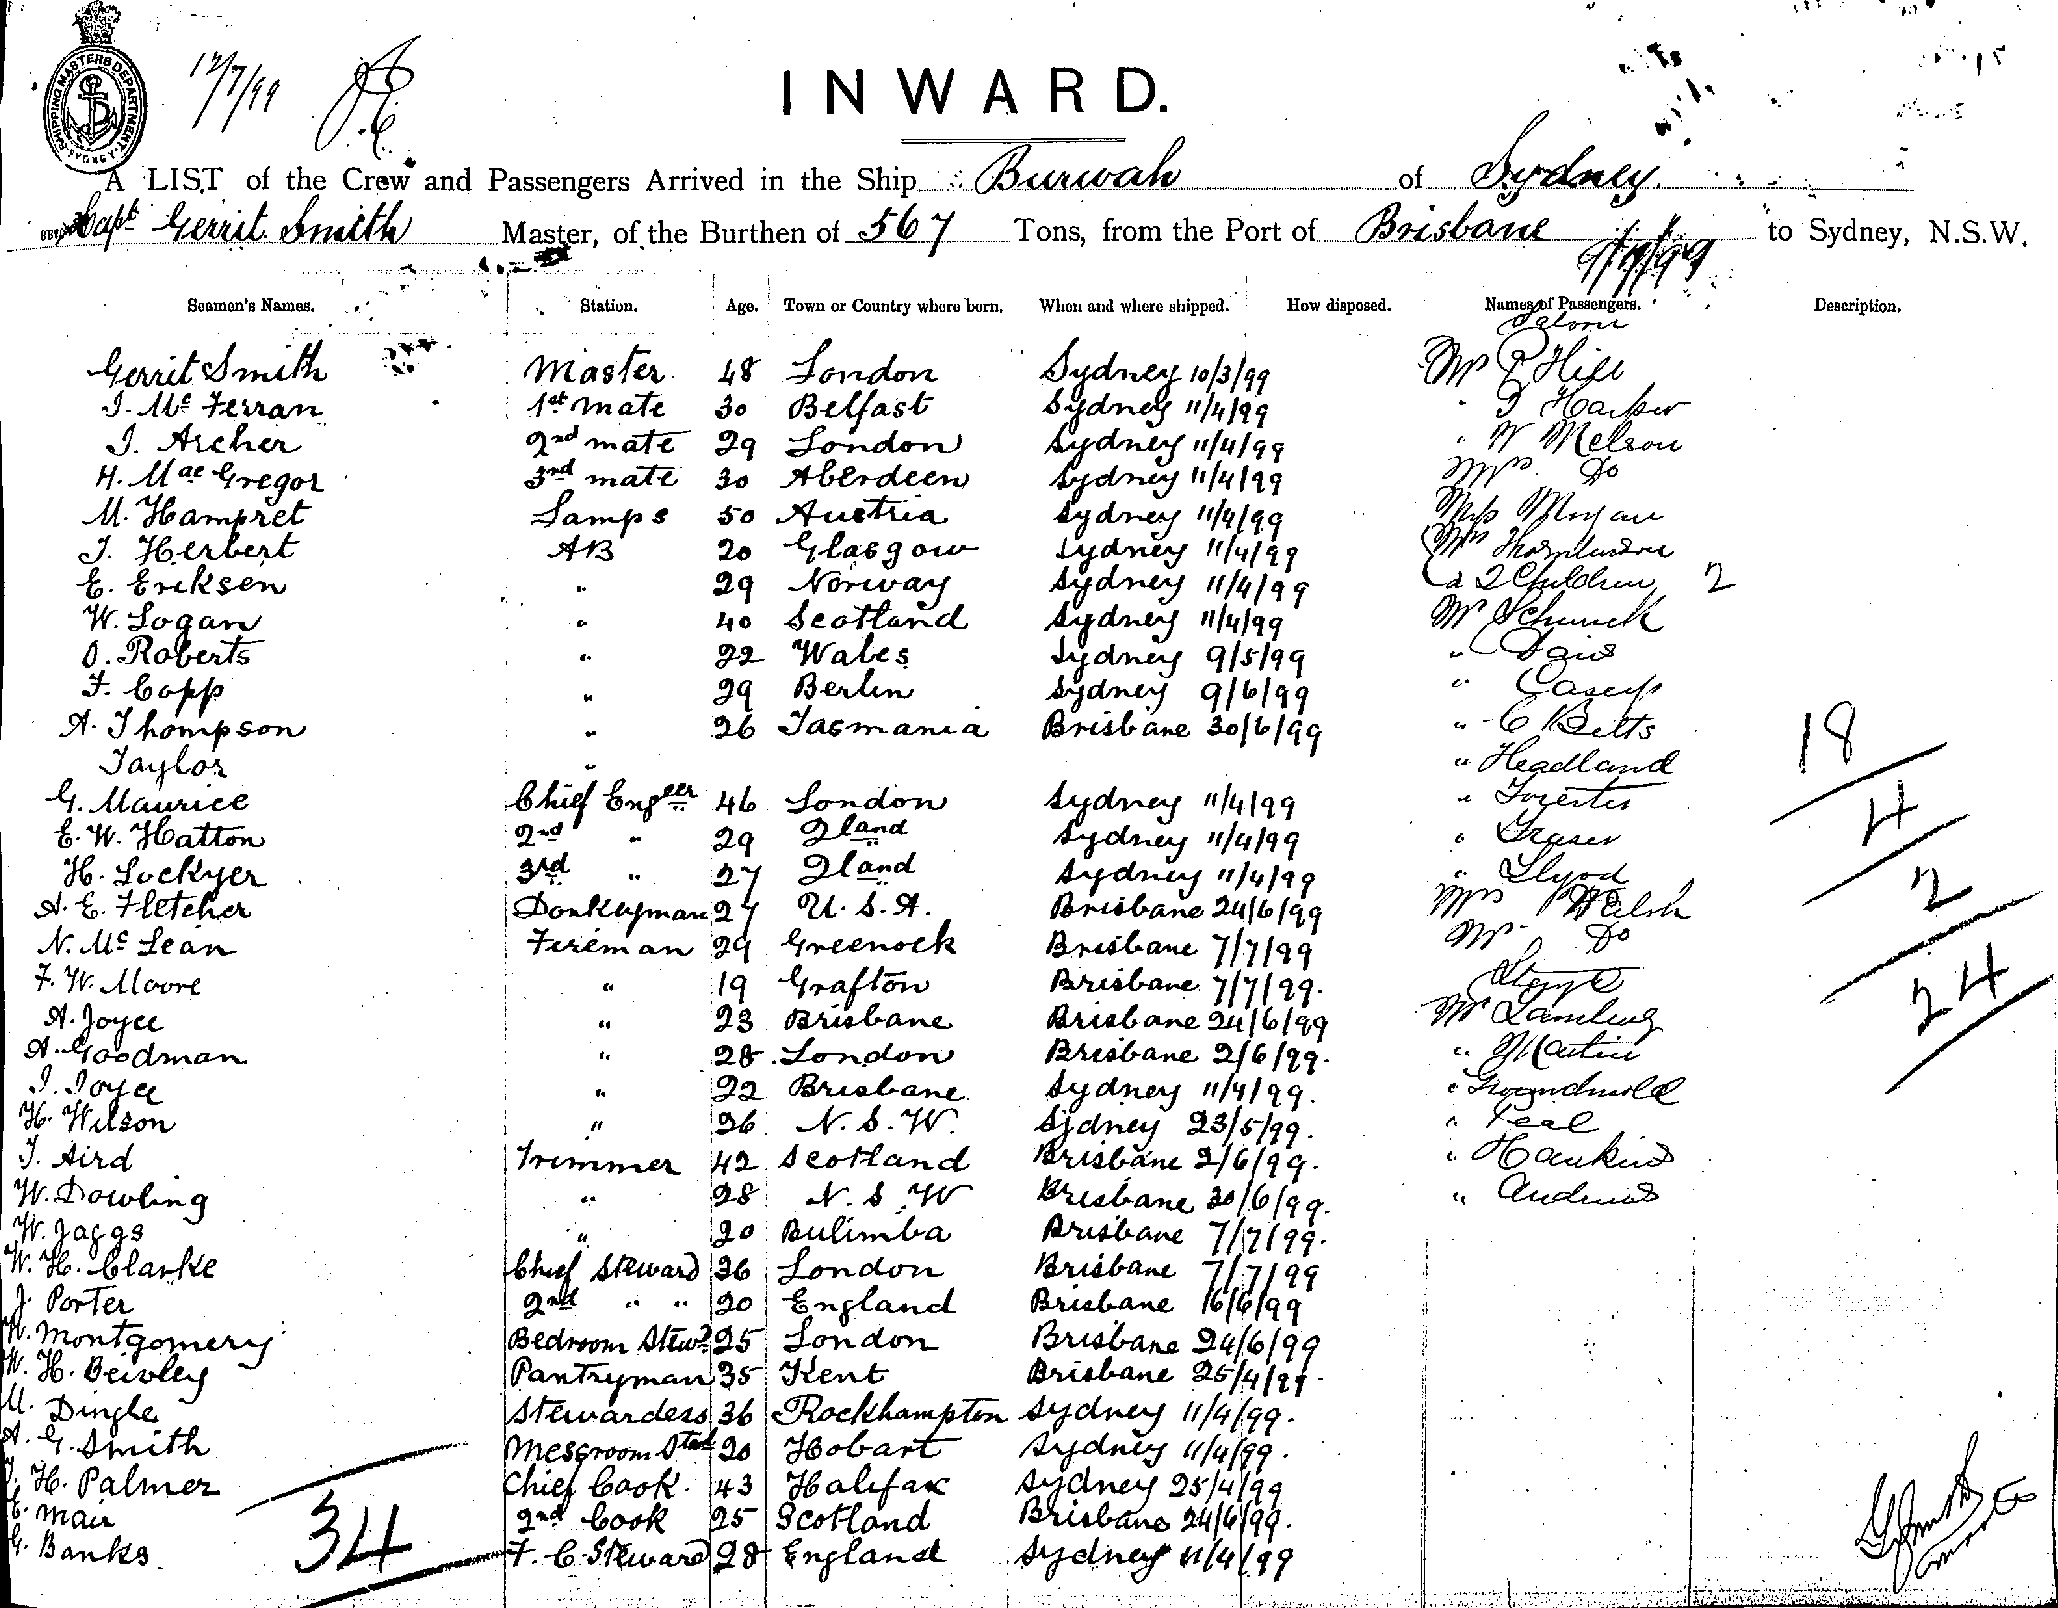 SHIPPING MASTERS DEPARTMENT SYDNEY
12/7/99
INWARD.
A LIST of the Crew and Passengers Arrived in the Ship Burwah of Sydney.
Capt Gerrit Smith Master, of the Burthen of 567 Tons, from the Port of Brisbane to Sydney, N.S.W.
Seamen's Names. Station. Age. Town or Country where born. When and where shipped. How disposed. Names of Passengers. Description.
Saloon
Gerrit Smith Master 48 London Sydney 10/3/99 Mr Hill
J. Mc Ferran 1st mate 30 Belfast Sydney 11/4/99 " Harper
J. Archer 2nd mate 29 London Sydney 11/4/99 " W Melson
H. Mac Gregor 3rd mate 30 Aberdeen Sydney 11/4/99 Mrs Do
M. Hampret Lamps 50 Austria Sydney 11/4/99 Miss
J. Herbert AB 20 Glasgow Sydney 11/4/99 Mrs
E. Eriksen " 29 Norway Sydney 11/4/99 & 2 Children 2
W. Logan " 40 Scotland Sydney 11/4/99 Mr
O. Roberts " 22 Wales Sydney 9/5/99 "
F. Copp " 29 Berlin Sydney 9/6/99 " Casey
A. Thompson " 26 Tasmania Brisbane 30/6/99 " C Betts
Taylor " " Headland
18
G. Maurice Chief Engeer 46 London Sydney 11/4/99 "
4
E. W. Hatton 2nd " 29 Iland Sydney 11/4/99 " Fraser
H. Lockyer 3rd " 27 Iland Sydney 11/4/99 " Llyod
2
A. E. Fletcher Donkeyman 27 U. S. A. Brisbane 24/6/99 Mrs Welsh
N. Mc Lean Fireman 29 Greenock Brisbane 7/7/99 Mr Do
F. W. Moore " 19 Grafton Brisbane 7/7/99.
24
A. Joyce " 23 Brisbane Brisbane 24/6/99 Mr
A. Goodman " 28 London Brisbane 2/6/99. " Martin
J. Joyce " 22 Brisbane Sydney 11/4/99. "
H. Wilson " 26 N. S. W. Sydney 23/5/99. " Peal
J. Aird Trimmer 42 Scotland Brisbane 2/6/99. " Hankins
W. Dowling " 28 N. S. W Brisbane 30/6/99. " Andrews
W. Jaggs " 20 Bulimba Brisbane 7/7/99.
W. H. Clarke Chief Steward 36 London Brisbane 7/7/99
J Porter 2nd " " 20 England Brisbane 16/6/99
Montgomery Bedroom Stewd 25 London Brisbane 24/6/99
W. H. Bewley Pantryman 35 Kent Brisbane 25/4/99.
M. Dingle Stewardess 36 Rockhampton Sydney 11/4/99.
A. G. Smith Messroom Std 20 Hobart Sydney 11/4/99.
H. Palmer Chief Cook. 43 Halifax Sydney 25/4/99
E. Mair 2nd Cook 25 Scotland Brisbane 24/6/99.
G. Banks. F. C. Steward 28 England Sydney 11/4/99
34